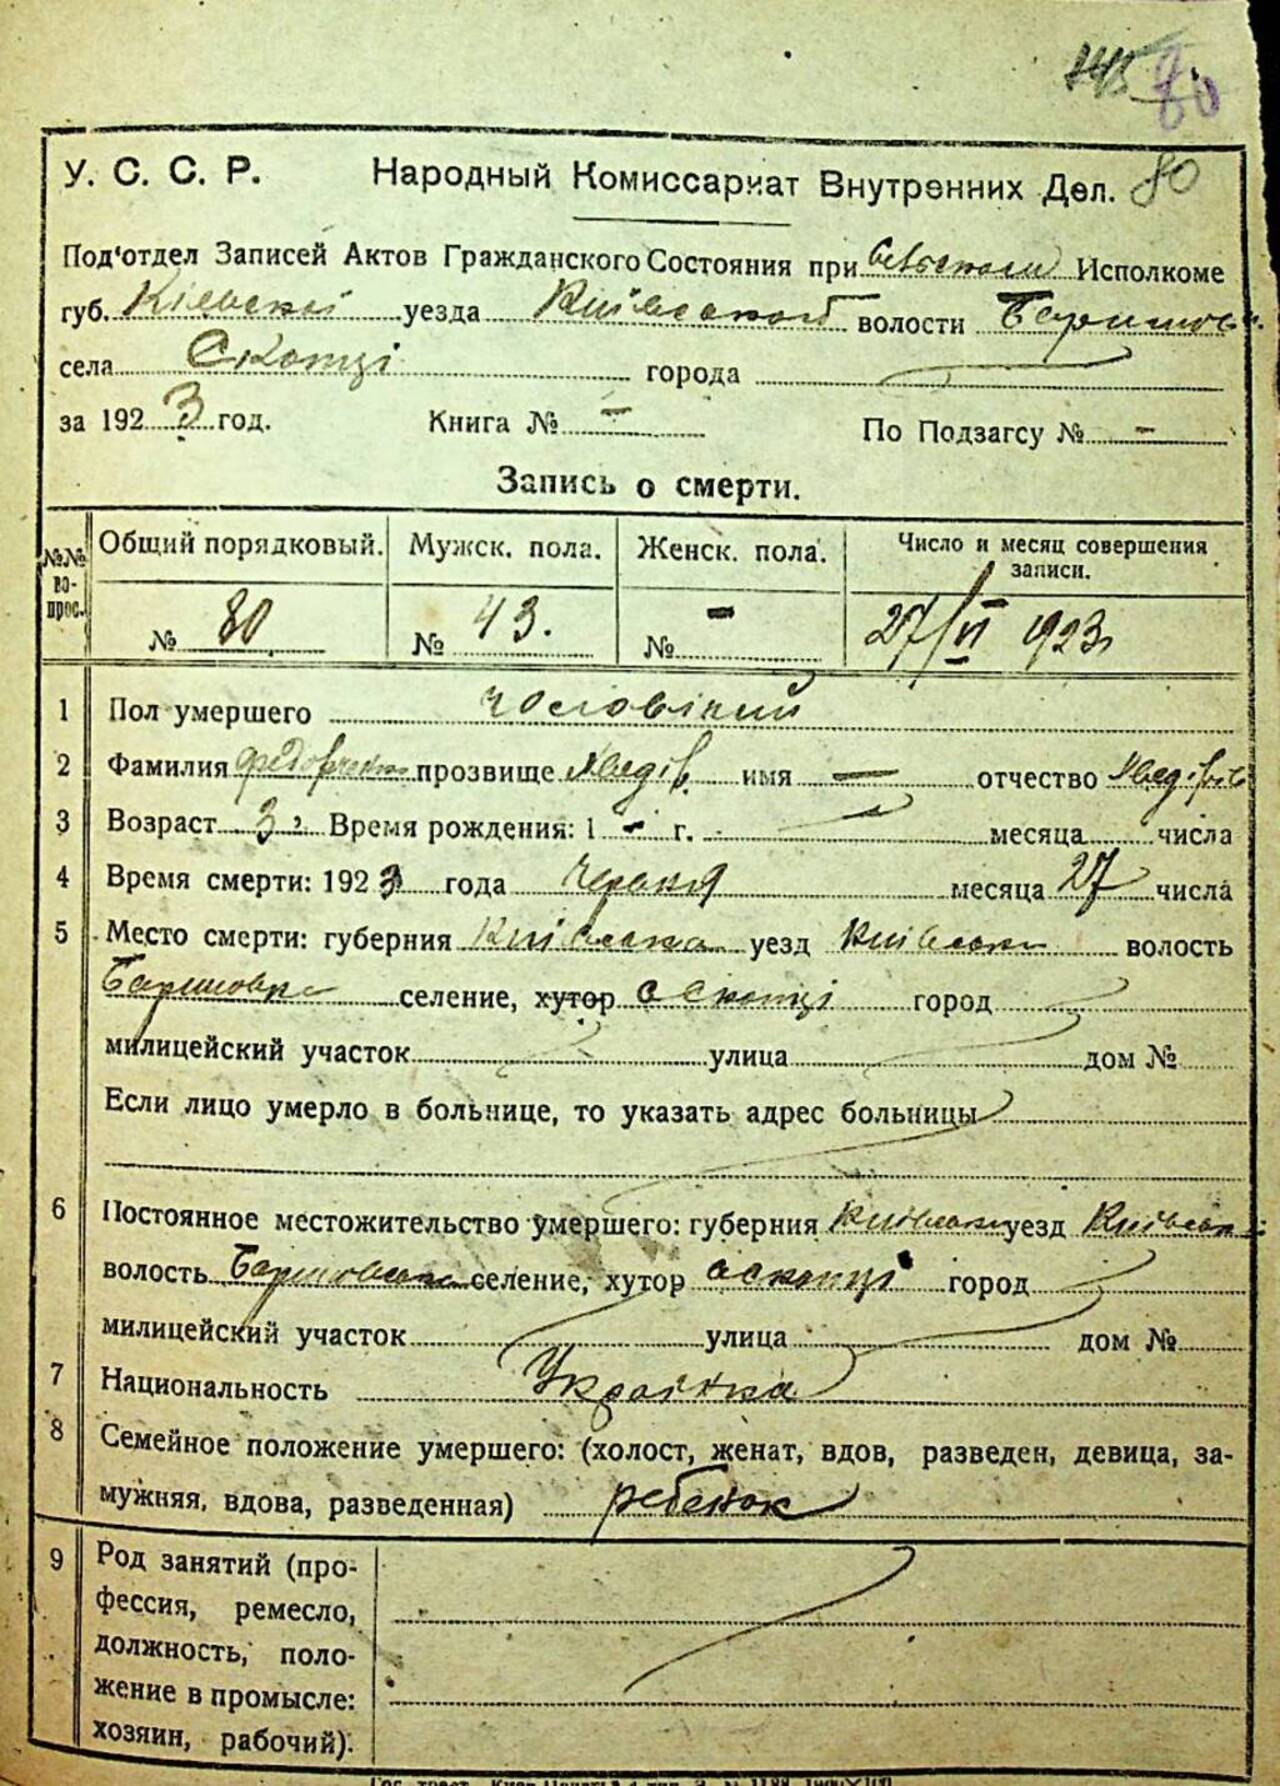 80
80
У. С. С. Р. Народный Комиссариат Внутренних Дел.
Под'отдел Записей Актов Гражданского Состояния при Исполкоме
губ. Кіевскій уезда Київської волости Баришов
села Скопці города
за 1923 год. Книга № - По Подзагсу № -
Запись о смерти.
№№ вопрос. Общий порядковый. Мужск. пола. Женск. пола. Число и месяц совершения записи.
№ 80 № 43. № - 27/VI 1923
1 Пол умершего чоловічий
2 Фамилия прозвище имя — отчество
3 Возраст 3 Время рождения: 1 - г. месяца числа
4 Время смерти: 1923 года червня месяца 27 числа
5 Место смерти: губерния Київська уезд Київськ волость
Баришовка селение, хутор с Скопці город
милицейский участок улица дом №
Если лицо умерло в больнице, то указать адрес больницы
6 Постоянное местожительство умершего: губерния Київська уезд Київськ
волость Баришовська селение, хутор с Скопці город
милицейский участок улица дом №
7 Национальность Українка
8 Семейное положение умершего: (холост, женат, вдов, разведен, девица, за-
мужняя, вдова, разведенная) ребенок
9 Род занятий (про-
фессия, ремесло,
должность, поло-
жение в промысле:
хозяин, рабочий).